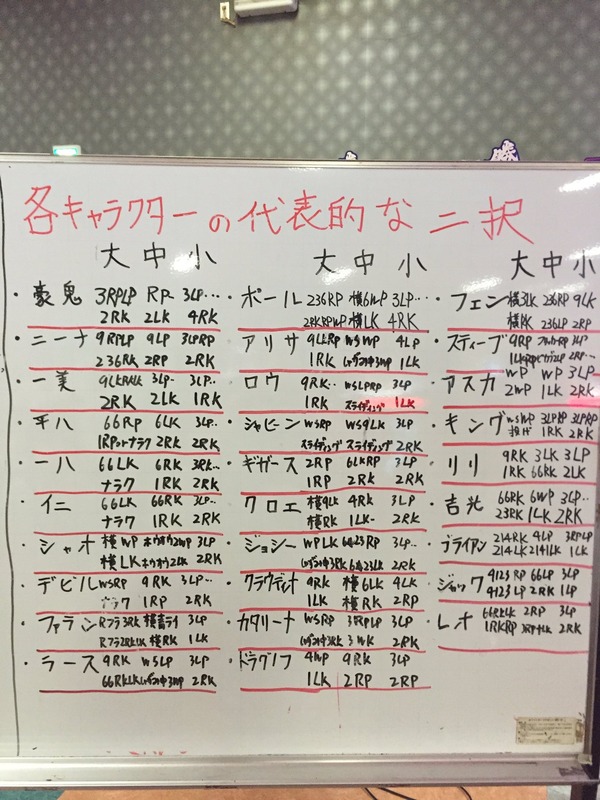 各キャラクターの代表的な二択
大 中 小
・豪鬼 3RPLP RP 3LP…
2RK 2LK 4RK
・ニーナ 9RPLP 9LP 3LPRP
236RK 2RP 2RK
・一美 9LKRKLK 3LP… 3LP…
2RK 2LK 1RK
・平八 66RP 6LK 3LP
1RPorナラク 2RK 2RK
・一八 66LK 6RK 3RK…
ナラク 1RK 2RK
・仁 66LK 66RK 3LP…
ナラク 1RK 2RK
・シャオ 横WP ホウオウ2WP 3LP
横LK ホウオウ2LK 2RK
・デビル WSRP 9RK 3LP…
ナラク 1RP 2RK
・ファラン Rフラ3RK 3LP
Rフラ2RKLK 横RK 1LK
・ラース 9RK WSLP 3LP
66RKLK 2RK
大 中 小
・ポール 236RP 横6WP 3LP…
2RKRPWP 横LK 4RK
・アリサ 9LKRP WSWP 4LP
1RK 1LK
・ロウ 9RK… WSLPRP 3LP
1RK スライディング 1LK
・シャヒーン WSRP WS9LK 3LP
スライディング スライディング 2RK
・ギガース 2RP 6LKRP 3LP
1RP 2RK 2RK
・クロエ 横9LK 4RK 3LP
横RK 1LK… 2RK
・ジョシー WPLK 3LP…
2RK
・クラウディオ 9RK 横6LK 4LK
1LK 横RK 2RP
・カタリーナ WSRP 3RRPLP 3LP
3WK 2RK
・ドラグノフ 4WP 9RK 3LP
1LK 2RP 2RP
大 中 小
・フェン 横3LK 236RP 9LK
横RK 236LP 2RP
・スティーブ 9RP 3LP
2RP…
・アスカ WP WP 3LP
2WP 1LK 2RK
・キング WSWP 3LPRP 3LPRP
投げ 1RK 2RK
・リリ 9RK 3LK 3LP
1RK 66RK 2LK
・吉光 66RK 6WP 3LP…
23RK 1LK 2RK
・ブライアン 214RK 4LP 3RPLP
214LK 214LK 1LK
・ジャック 4123RP 66LP 3LP
4123LP 2RK 1LP
・レオ 66RKLK 2RP 3LP
1RKRP 2RK